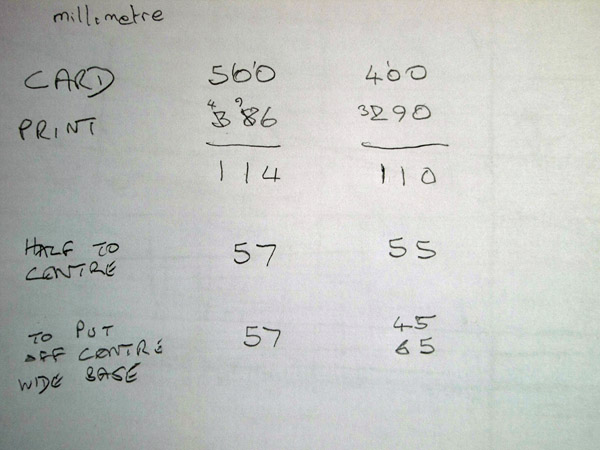 millimetre
CARD 500 400
PRINT 386 290
114 110
HALF TO
CENTRE 57 55
TO PUT 45
OFF CENTRE 57 65
WIDE BASE